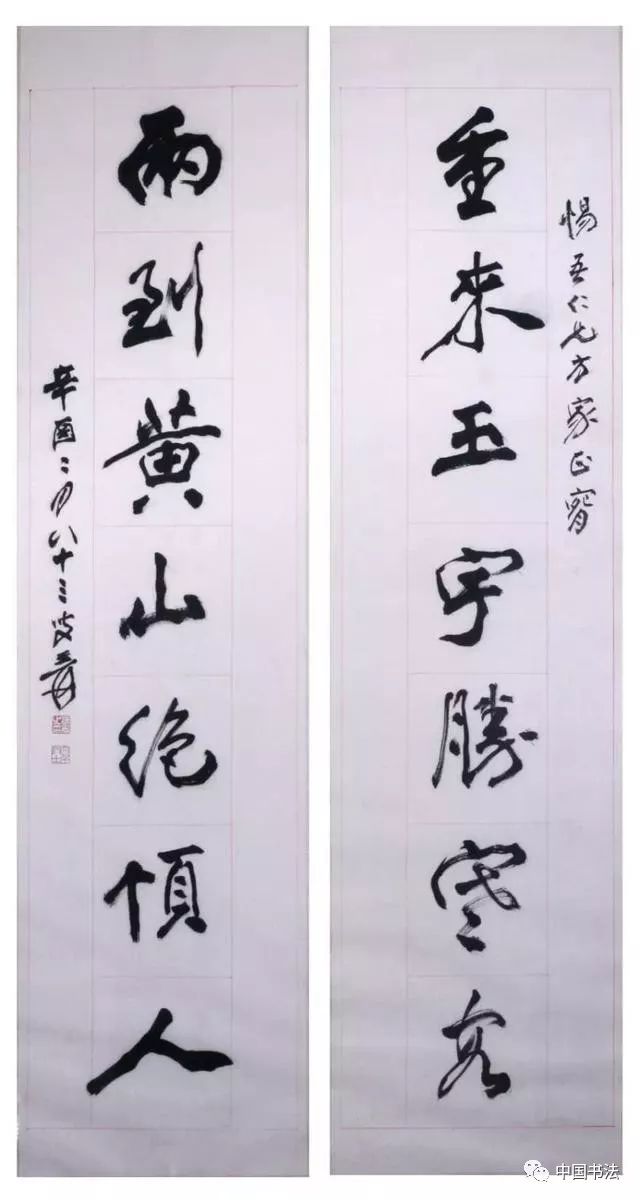 惕吾仁兄方家正
重來玉宇勝寒客
兩到黃山絕頂人
辛酉二月八十三叟爰
中国书法